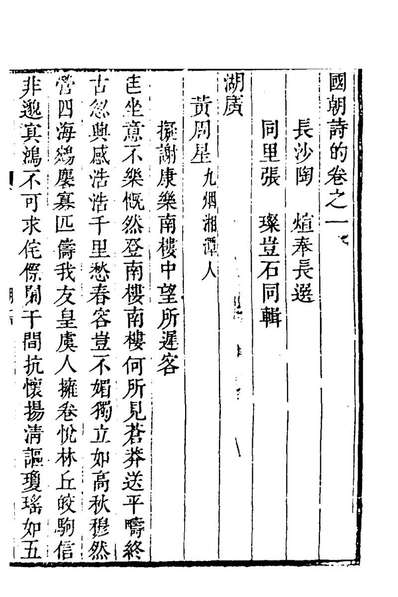 國朝詩的卷之一
長沙陶 煊奉長選
同里張 璨豈石同輯
湖廣
黃周星九烟湘潭人
擬謝康樂南樓中望所遲客
坐意不樂慨然登南樓南樓何所見蒼莽送平疇終
古忽興感浩浩千里愁春容豈不媚獨立如高秋穆然
營四海鷄塵寡匹儔我友皇虞人擁卷悅林丘皎駒信
非邈寘鴻不可求侘傺閣干間抗懷揚清謳瓊瑤如五